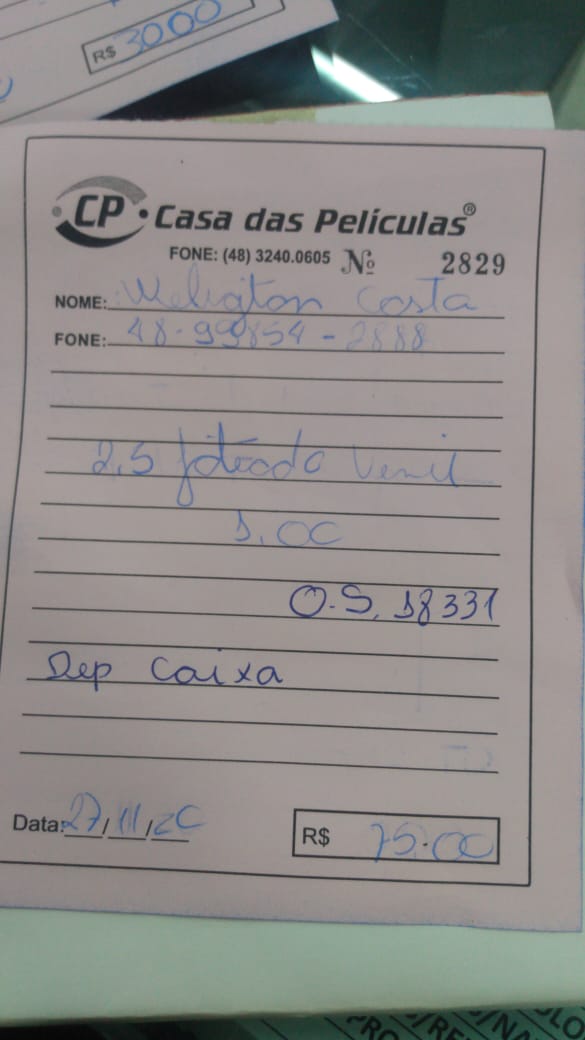 R$ 3000
CP • Casa das Películas®
FONE: (48) 3240.0605 Nº 2829
NOME: Costa
FONE: 48-99854-2888
2,5
1,00
O.S. 18331
Dep Caixa
Data: 27/11/20 R$ 75.00